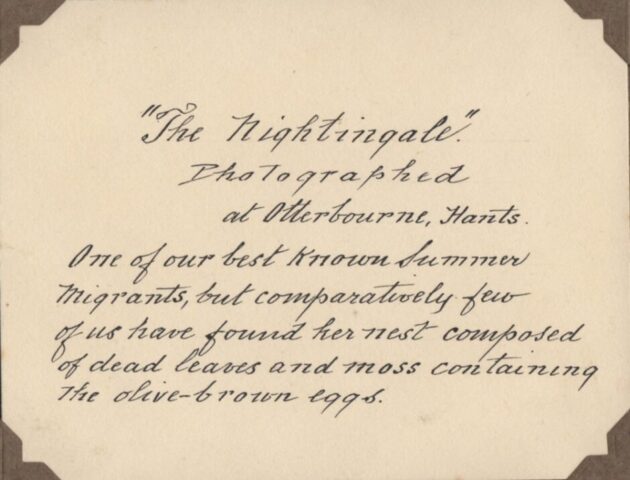 "The Nightingale".
Photographed
at Otterbourne, Hants.
One of our best known Summer
Migrants, but comparatively few
of us have found her nest composed
of dead leaves and moss containing
the olive-brown eggs.